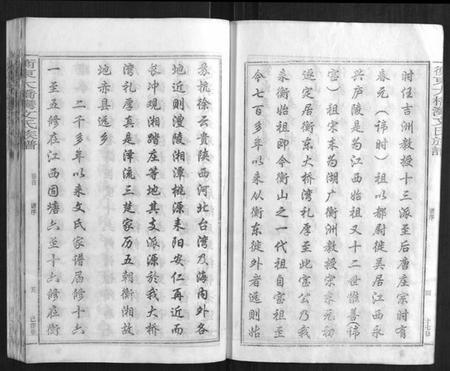 时任吉洲教授十三派至后唐庄宗时有
春元（祎时）祖以都尉徙吴居江西永
兴庐陵是为江西始祖又十二世惟善（祎
宫）祖宋本为湖广衡洲教授宋末元初
返定居衡东大桥湾礼厚至此宫公乃我
来衡始祖即今衡山之一代祖自宫祖至
今七百多年以来从衡东徙外者远则始
苏杭徐云贵陕西河北台湾乃海内外各
地近则澧陵湘潭桃源耒阳安仁再近而
长冲观湘踏庄等地其支派源于我大桥
湾礼厚真是泽流三楚家历五朝衡湘故
地赤县远乡
二千多年以来文氏家谱届修十六
一至五修在江西固塘六至十六修在衡
衡東大橋灣文氏族譜
卷首
譜序
五